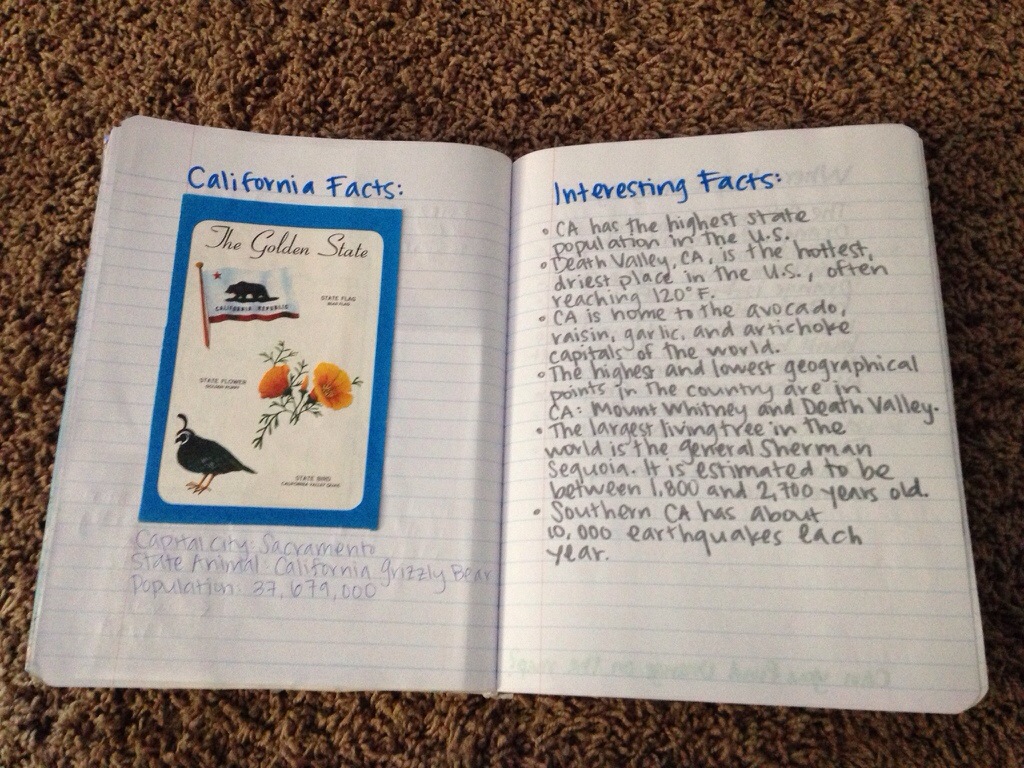 California Facts:
The Golden State
STATE FLAG
BEAR FLAG
CALIFORNIA REPUBLIC
STATE FLOWER
GOLDEN POPPY
STATE BIRD
CALIFORNIA VALLEY QUAIL
Capital city: Sacramento
State Animal: California grizzly Bear
Population: 37,679,000
Interesting Facts:
• CA has the highest state
population in the U.S.
• Death Valley, CA, is the hottest,
driest place in the U.S., often
reaching 120° F.
• CA is home to the avocado,
raisin, garlic, and artichoke
capitals of the world.
• The highest and lowest geographical
points in the country are in
CA: Mount Whitney and Death Valley.
• The largest living tree in the
world is the general Sherman
Sequoia. It is estimated to be
between 1,800 and 2,700 years old.
• Southern CA has about
10,000 earthquakes each
year.